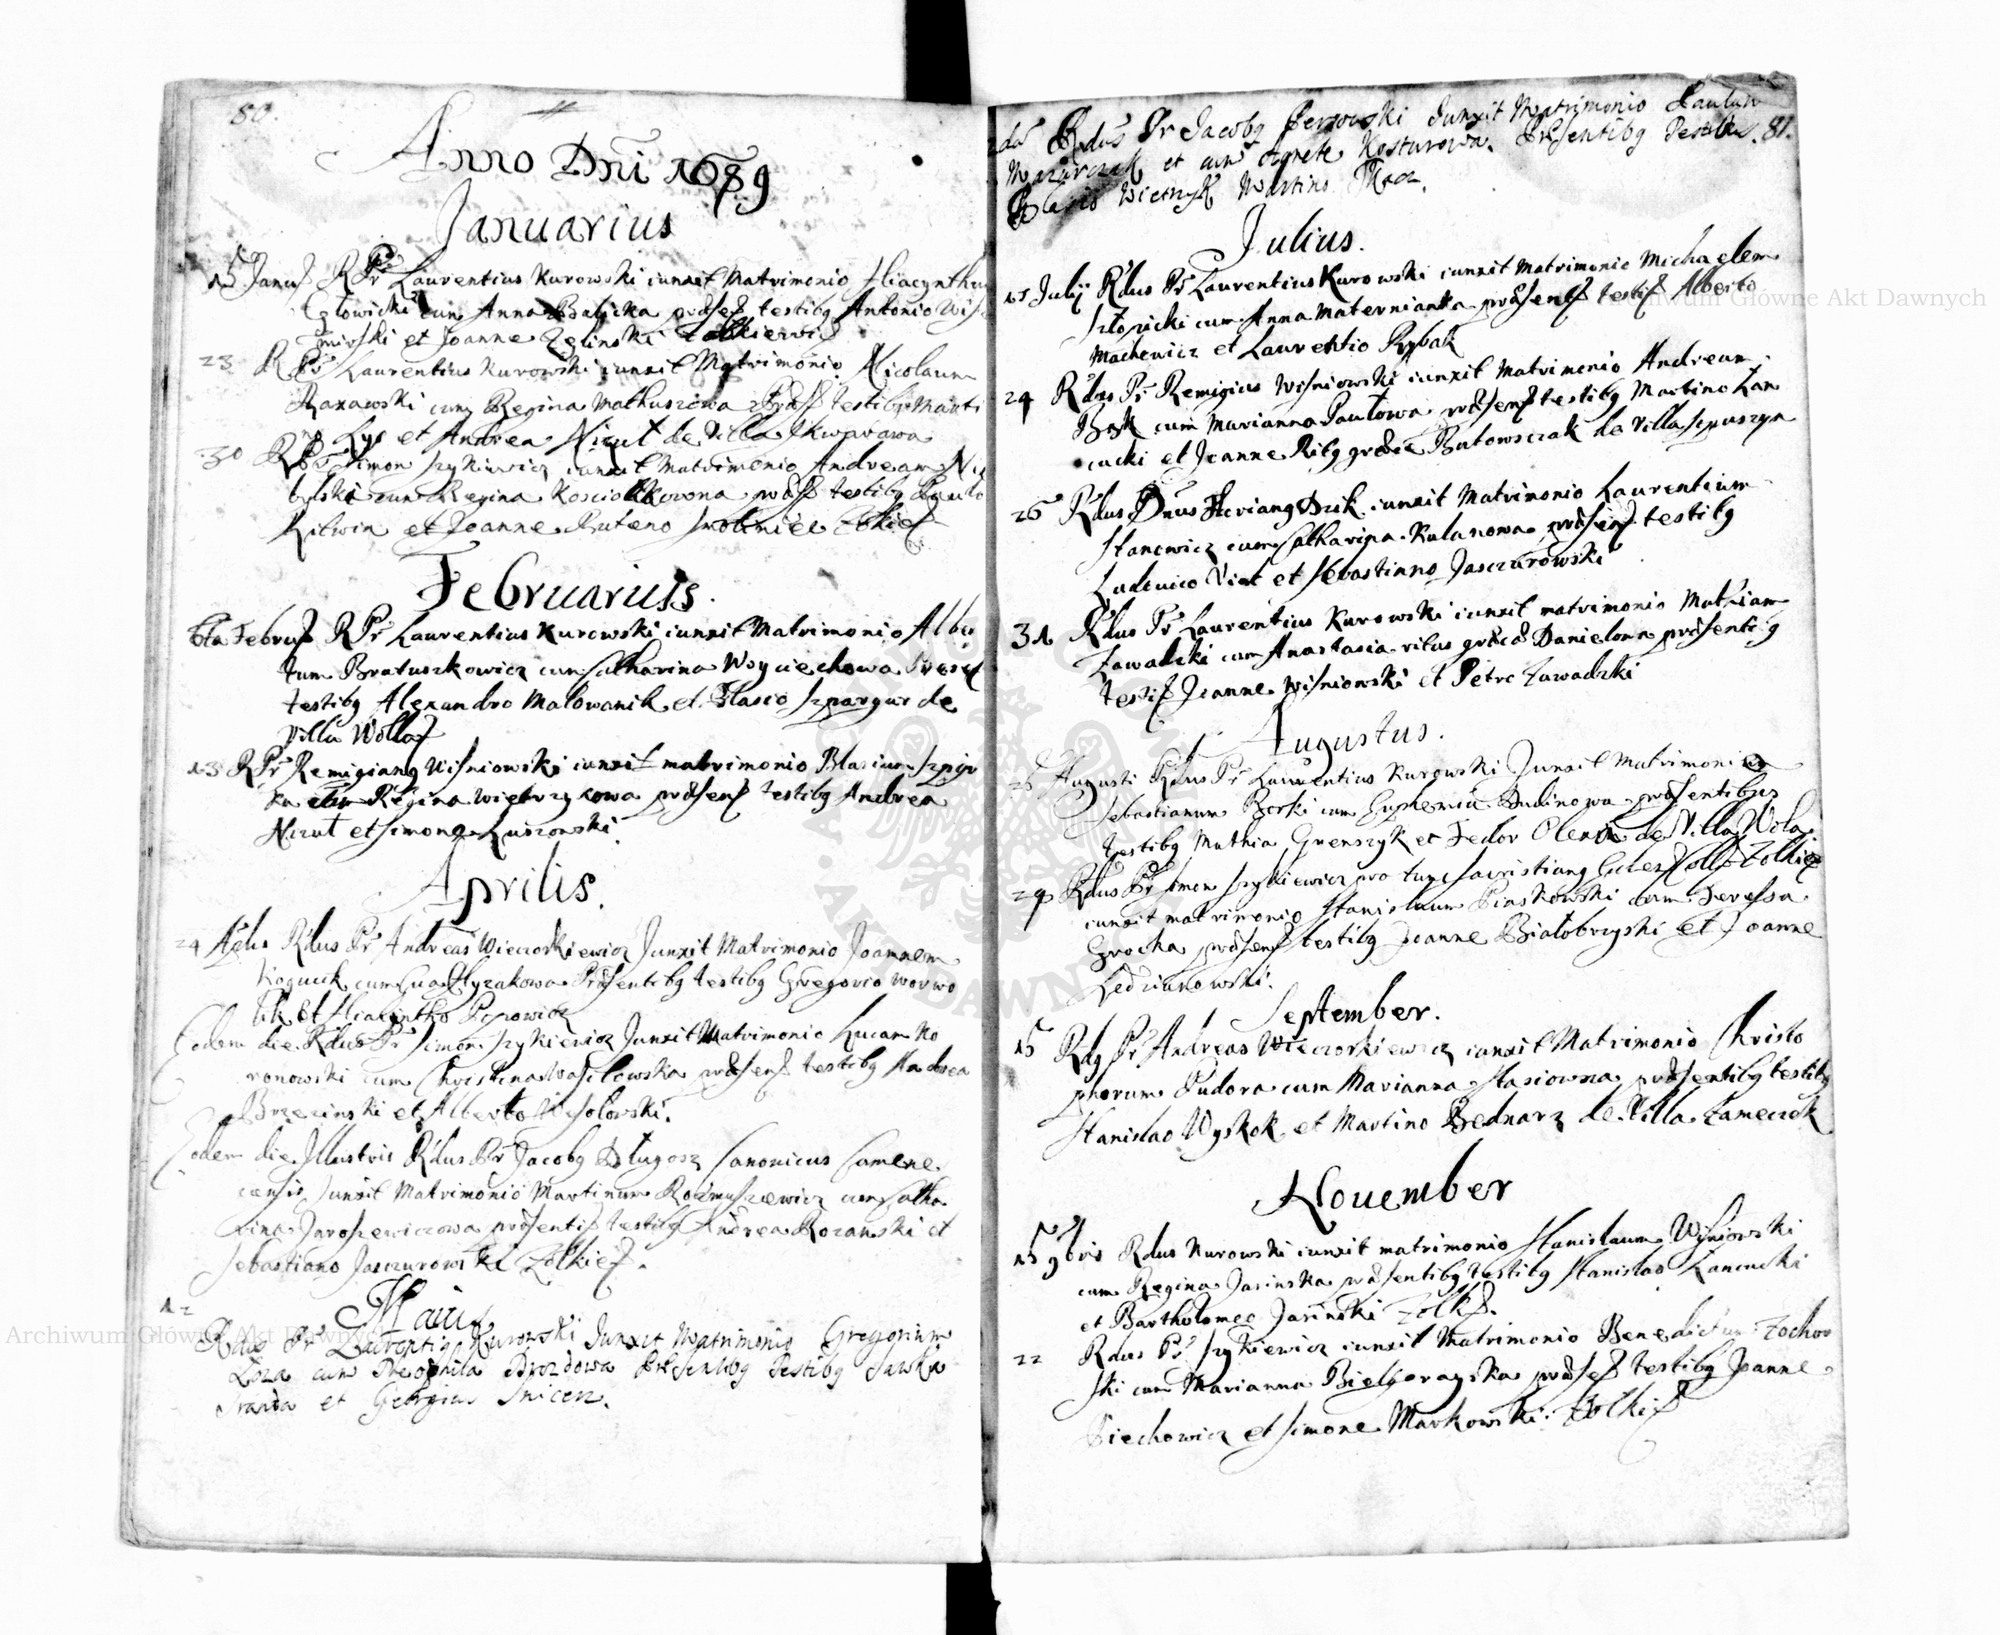 80.
Anno Dni 1689
Januarius
15 Januar RPr Laurentius Kurowski iunxit Matrimonio Hiacynthum
cum Anna Balicka præsen testibg Antonio
et Joanne Zelinski Zolkiewien
23 R Pr Laurentius Kurowski iunxit Matrimonio Nicolaum
Razawski cum Regina Mathuszowa præsen testibg Marti
no Lys et Andrea Nizut de Villa Skwarawa
30 R Pr Simon Szykiewicz iunxit Matrimonio Andream
cum Regina Kosciolkowona præsen testibg
Litwin et Joanne Ruteno Zolkief
Februarius.
6ta Februar RPr Laurentius Kurowski iunxit Matrimonio Alber
tum Bratuszkowicz cum Catharina Woyciechowa Presen
testibg Alexandro Malowanik et Blasio Szpargur de
Villa Wolla
13 RPr Remigiang Wisniowski iunxit matrimonio Blasium
ka cum Regina Wietrzykowa præsen testibg Andrea
Nizut et Simone Luszowski.
Aprilis.
24 Aplis Rdus Pr Andreas Wieczorkiewicz Junxit Matrimonio Joannem
Koguik cum Eua Præsentibg testibg Gregorio Worwo
lik et Hiacintho Popowicz
Eodem die Rdus Pr Simon Szykiewicz Junxit Matrimonio Lucam Ko
ronowski cum Christina Wasilowska præsen testibg Andrea
Brzezinski et Alberto Wesolowski.
Eodem die Illustris Rdus Pr Jacobg Dlugosz Canonicus Camene
censis Junxit Matrimonio Martinum Rozmuszewicz cum Catha
rina Jaroszewiczowa præsenti testibg Andrea Rozanski et
Sebastiano Jasczurowski Zolkief.
Maius
12 Rdus Pr Laurentig Kurowski Junxit Matrimonio Gregorium
Loza cum Theophila Drozdowa Præsentibg Testibg Sawka
et Georgius Snicerz.
81.
2da Rdus Pr Jacobg Perzowski Junxit Matrimonio Paulum
Mazurczak et cum Agnete Kosturowa. Præsentibg Testibus
Blasio Wietrzyk Martino Tkacz.
Julius.
15 Julij Rdus Pr Laurentius Kurowski iunxit Matrimonio Michaelem
Szlopicki cum Anna Maternianka præsen testib Alberto
Machewicz et Laurentio Rybak
24 Rdus Pr Remigius Wisniowski iunxit Matrimonio Andream
Bak cum Marianna Pawlowa præsen testibg Martino Lan
cucki et Joanne Ritg græce Butowsczak de Villa Spuszyn
26 Rdus Dnus Floriang Dzik iunxit Matrimonio Laurentium
Stancwicz cum Catharina Kulanowa præsen testibg
Ludouico Viat et Sebastiano Jasczurowski
31 Rdus Pr Laurentius Kurowski iunxit matrimonio Mathiam
Zawadzki cum Anastasia ritus græca Danielowa præsentibg
testib Joanne Wisniowski et Petro Zawadzki
Augustus.
28 Augusti Rdus Pr Laurentius Kurowski Junxit Matrimonio
Sebastianum Borki cum Euphemia Dudinowa præsentibus
testibg Mathia Grenszyk et Fedor Olenik de Villa Wola.
29 Rdus Pr Simon Szykiewicz pro tunc Sacristiang Eccles Colle Zolkie
iunxit matrimonio Stanislaum Piaskowski cum Teressa
Grocka præsen testibg Joanne Bialobrzyski et Joanne
Ledzianowski.
September.
15 Rdg Pr Andreas Wieczorkiewicz iunxit Matrimonio Christo
phorum Pudora cum Marianna Stasiowna præsentibg testibg
Stanislao Wyskok et Martino Bednarz de Villa Zameczek
Nouember
15 9bris Rdus Kurowski iunxit matrimonio Stanislaum Wisniowski
cum Regina Jasinska præsentibg testibg Stanislao Lancucki
et Bartholomeo Jasinski Zolk.
22 Rdus Pr Szykiewicz iunxit Matrimonio Benedictum Zochow
ski cum Marianna Bielgorayska præsen testibg Joanne
Piechowicz et Simone Markowski Zolkif
Archiwum Główne Akt Dawnych
Archiwum Główne Akt Dawnych